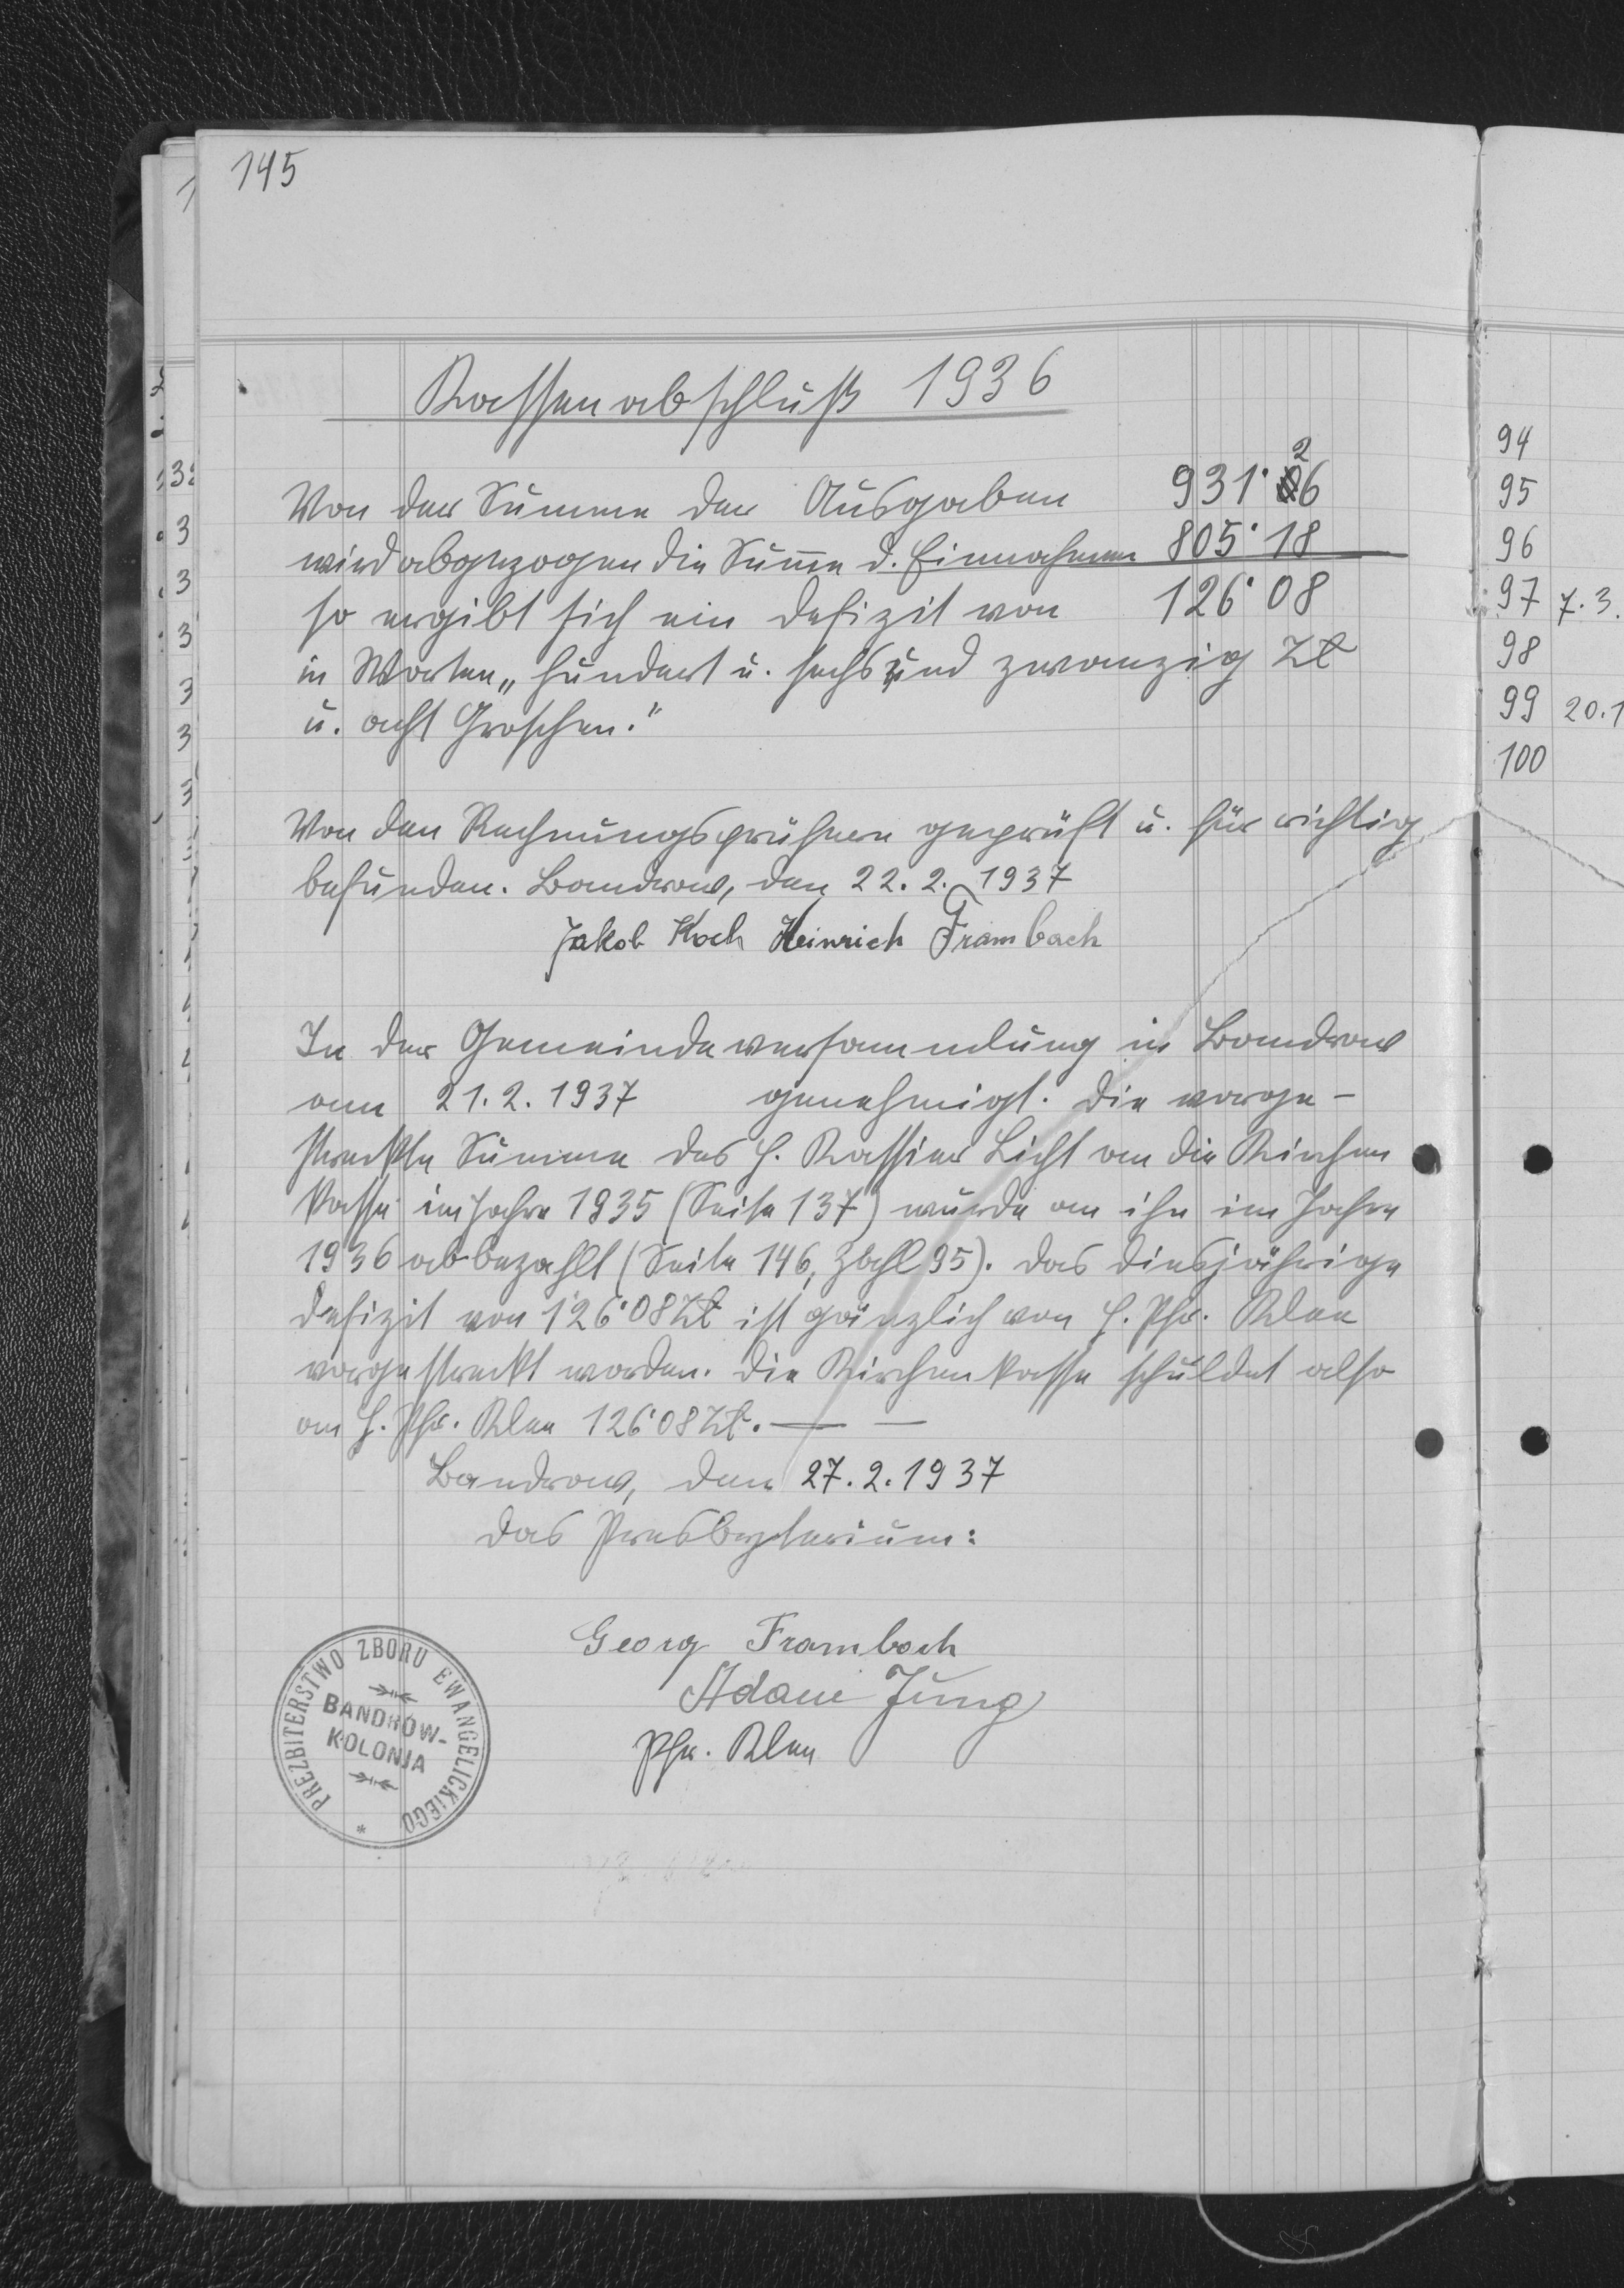 145
Kassenabschluß 1936
Von der Summe der Ausgaben 931˙26
wird abgezogen die Sum̅e d. Einnahmen 805˙18
so ergibt sich ein Defizit von 126˙08
in Worten „hundert u. sechsund zwanzig Zł
u. acht Groschen."
Von den Rechnungsprüfern geprüft u. für richtig
befunden. Bandrow, den 22.2.1937
Jakob Koch Heinrich Frambach
In der Gemeindeversammlung in Bandrow
am 21.2.1937 genehmigt. Die vorge-
streckte Summe des H. Kassier Licht an die Kirchen
kasse im Jahre 1935 (Seite 137) wurde an ihn im Jahre
1936 abbezahlt (Seite 146, Zahl 95). Das diesjährige
Defizit von 126˙08 Zł ist gänzlich von H. Pfr. Klee
vorgestreckt worden. Die Kirchenkasse schuldet also
an H. Pfr. Klee 126˙08 Zł. — —
Bandrow, den 27.2.1937
Das Presbyterium:
Georg Frambach
Adam Jung
Pfr. Klee
PREZBITERSTWO ZBORU EWANGELICKIEGO *
BANDRÓW-
KOLONJA
94
95
96
97 7.3.
98
99 20.1
100